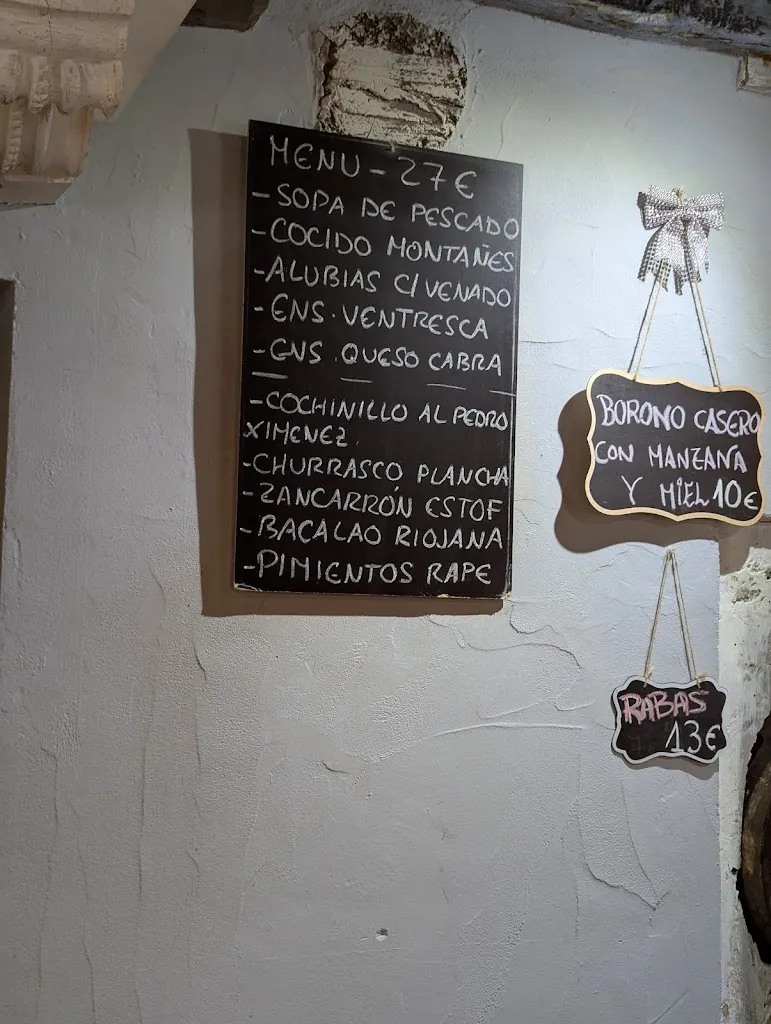 MENU - 27€
- SOPA DE PESCADO
- COCIDO MONTAÑES
- ALUBIAS C/VENADO
- ENS. VENTRESCA
- ENS. QUESO CABRA
- COCHINILLO AL PEDRO
XIMENEZ.
- CHURRASCO PLANCHA
- ZANCARRÓN ESTOF
- BACALAO RIOJANA
- PIMIENTOS RAPE
BORONO CASERO
CON MANZANA
Y MIEL 10€
RABAS
13€